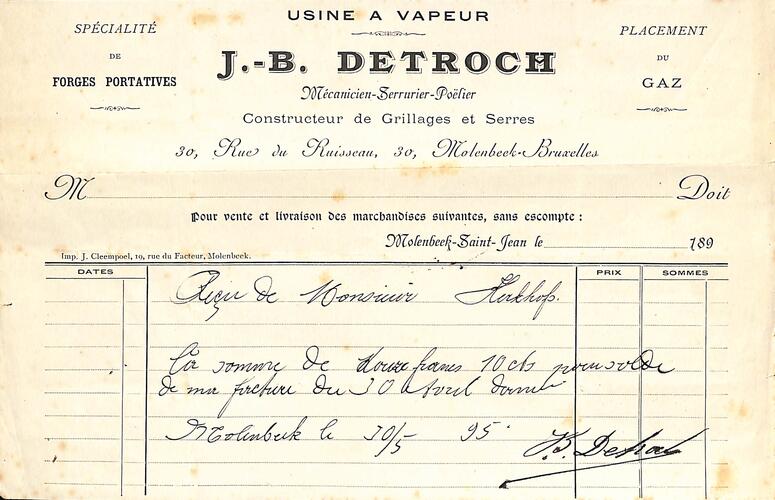 USINE A VAPEUR
SPÉCIALITÉ
DE
FORGES PORTATIVES
J.-B. DETROCH
PLACEMENT
DU
GAZ
Mécanicien-Serrurier-Poëlier
Constructeur de Grillages et Serres
30, Rue du Ruisseau, 30, Molenbeek-Bruxelles
M Doit
Pour vente et livraison des marchandises suivantes, sans escompte :
Molenbeek-Saint-Jean le 189
Imp. J. Cleempoel, 19, rue du Facteur, Molenbeek.
DATES PRIX SOMMES
Reçu de Monsieur Kerkhofs.
La somme de douze francs 10 cts pour solde
de ma facture du 30 Avril dernier
Molenbeek le 30/5 95.
J.B. Detroch